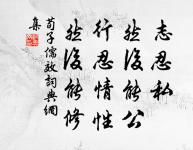 志忍私
然後能公
行忍情性
然後能修
荀子儒效詞典網
集